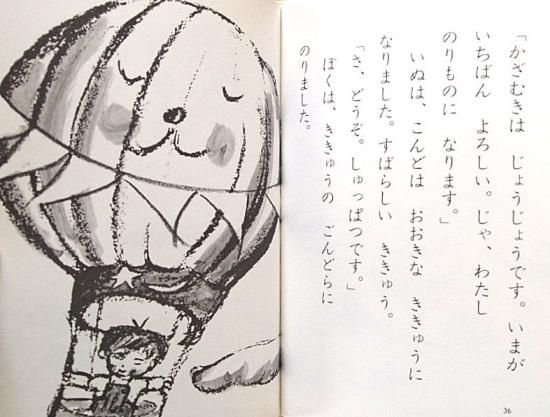 「かざむきは　じょうじょうです。いまが
いちばん　よろしい。じゃ、わたし
のりものに　なります。」
いぬは、こんどは　おおきな　ききゅうに
なりました。すばらしい　ききゅう。
「さ、どうぞ。しゅっぱつです。」
ぼくは、ききゅうの　ごんどらに
のりました。
36